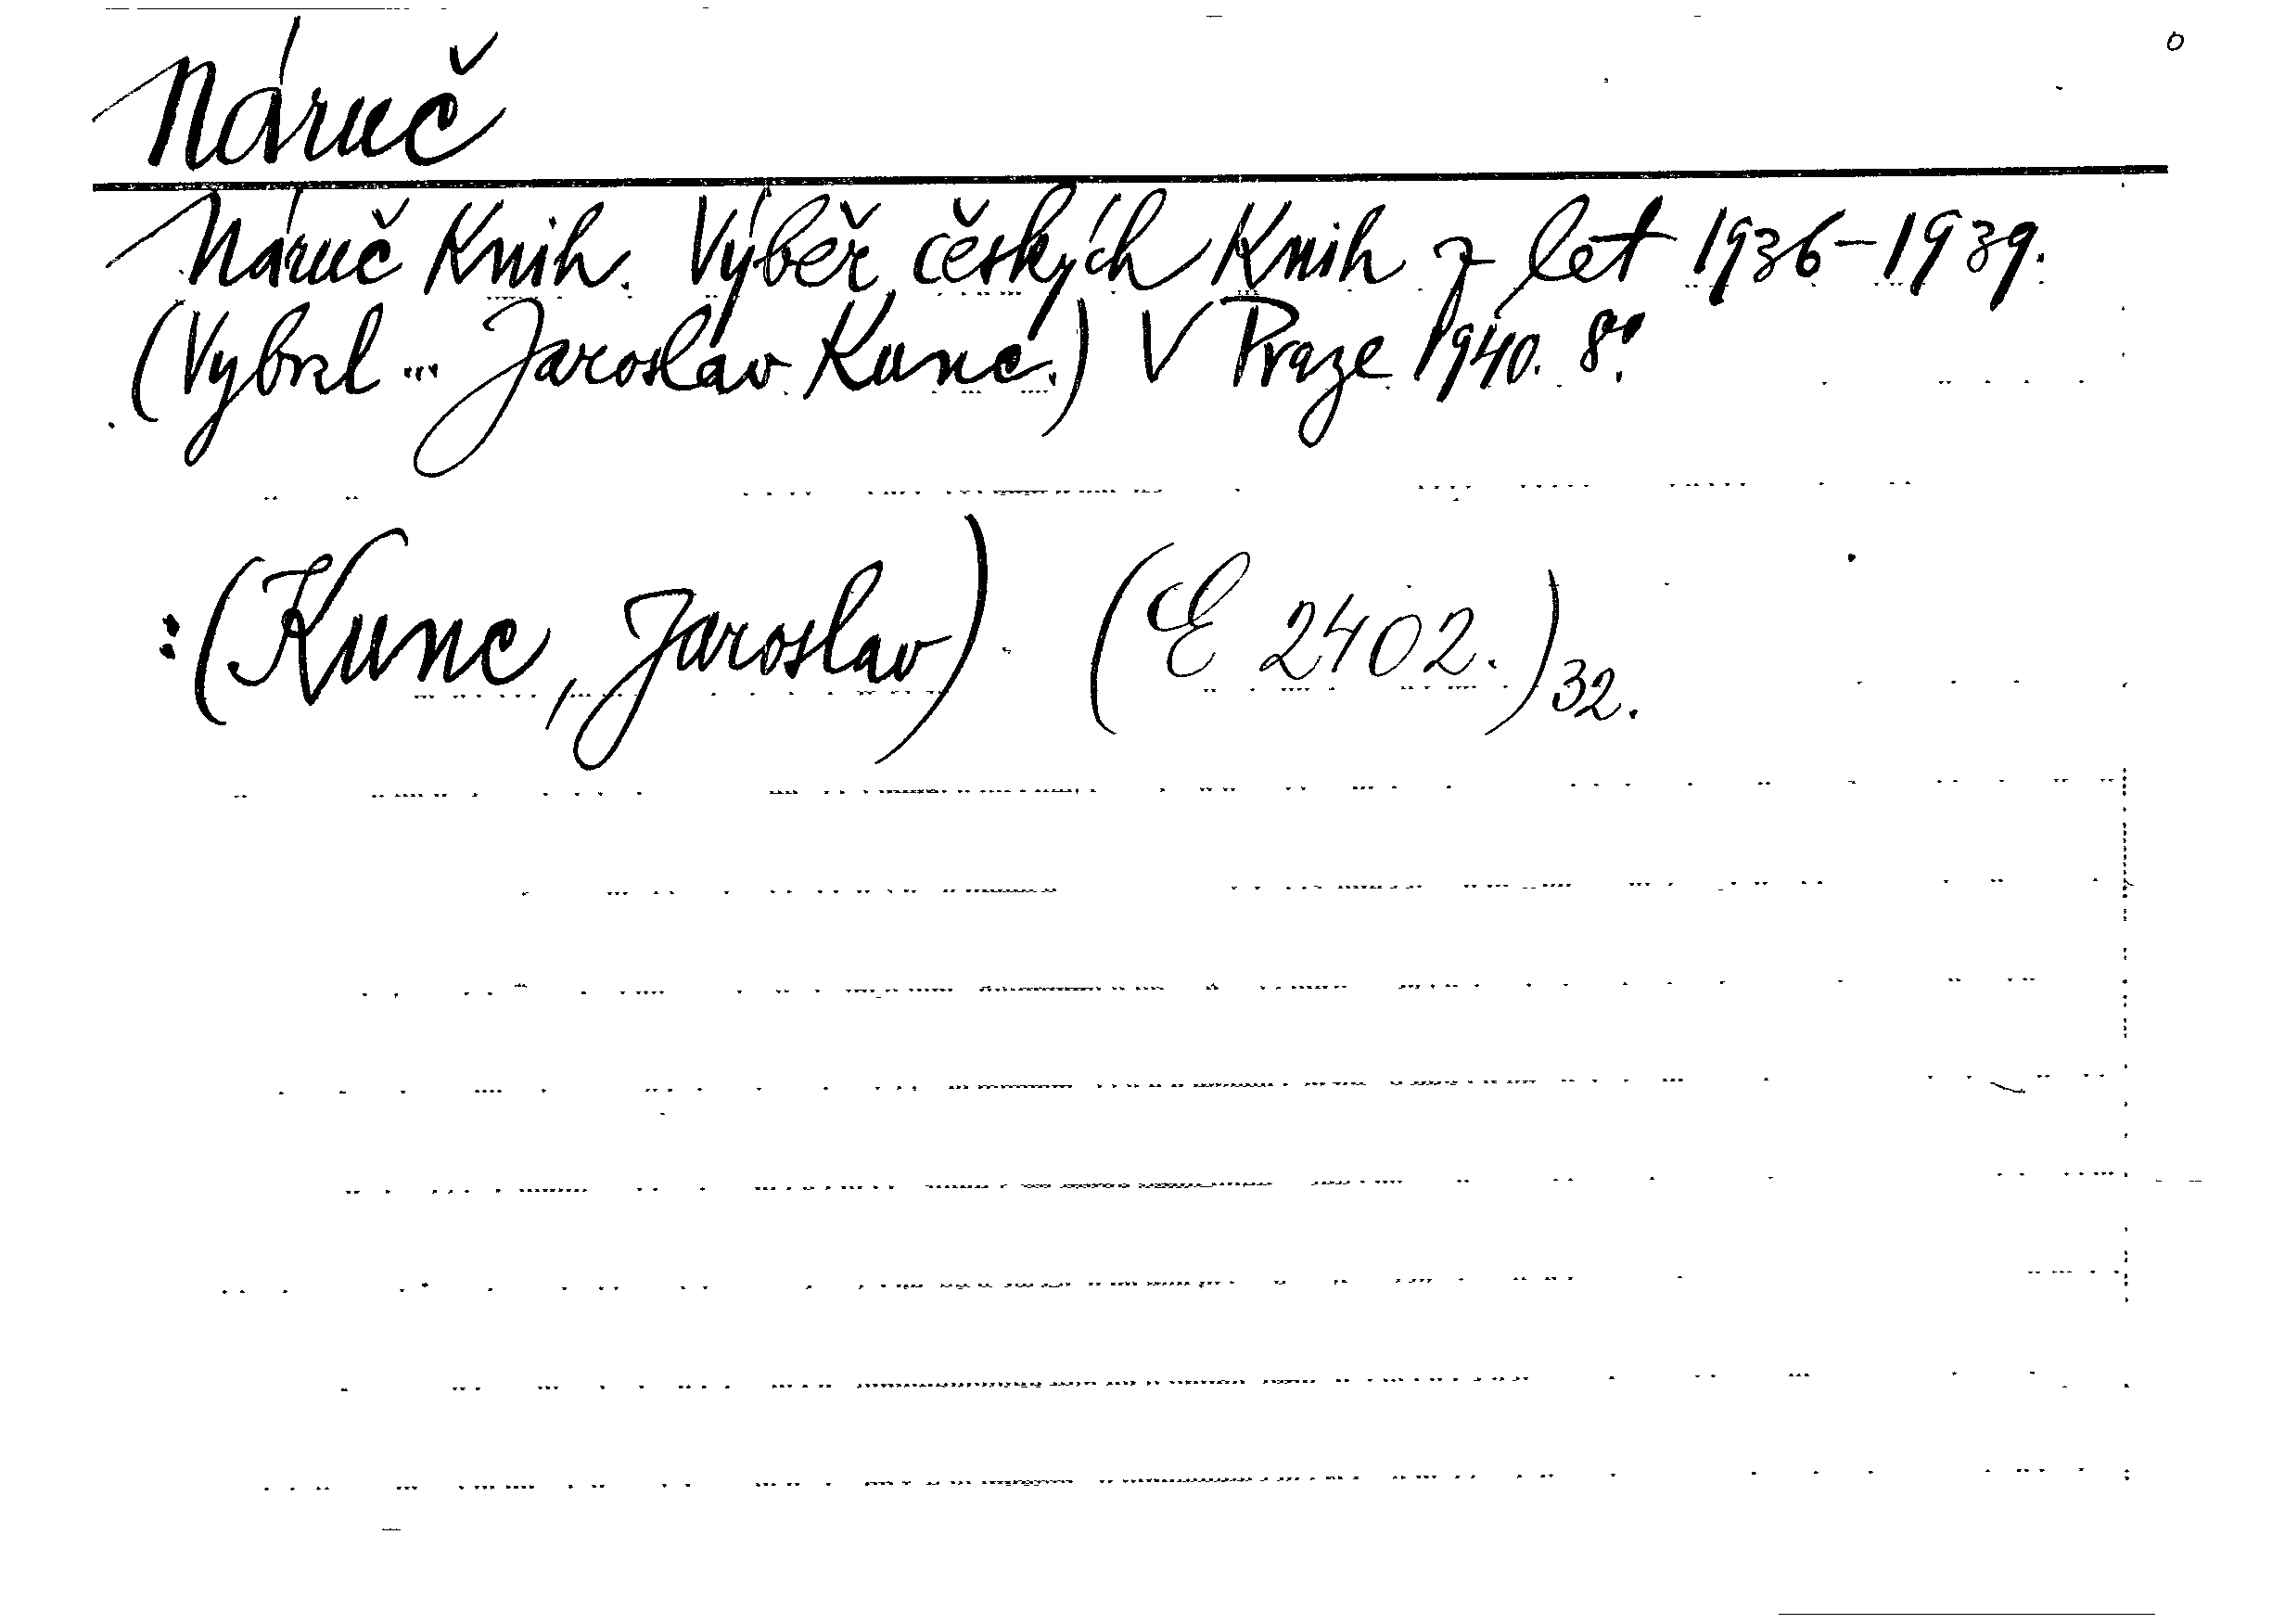 Náruč
Náruč Knih. Výběr českých Knih z let 1936-1939.
(Vybral ... Jaroslav Kunc.) V Praze 1940. 8°.
:(Kunc, Jaroslav) (E 2402.)32.